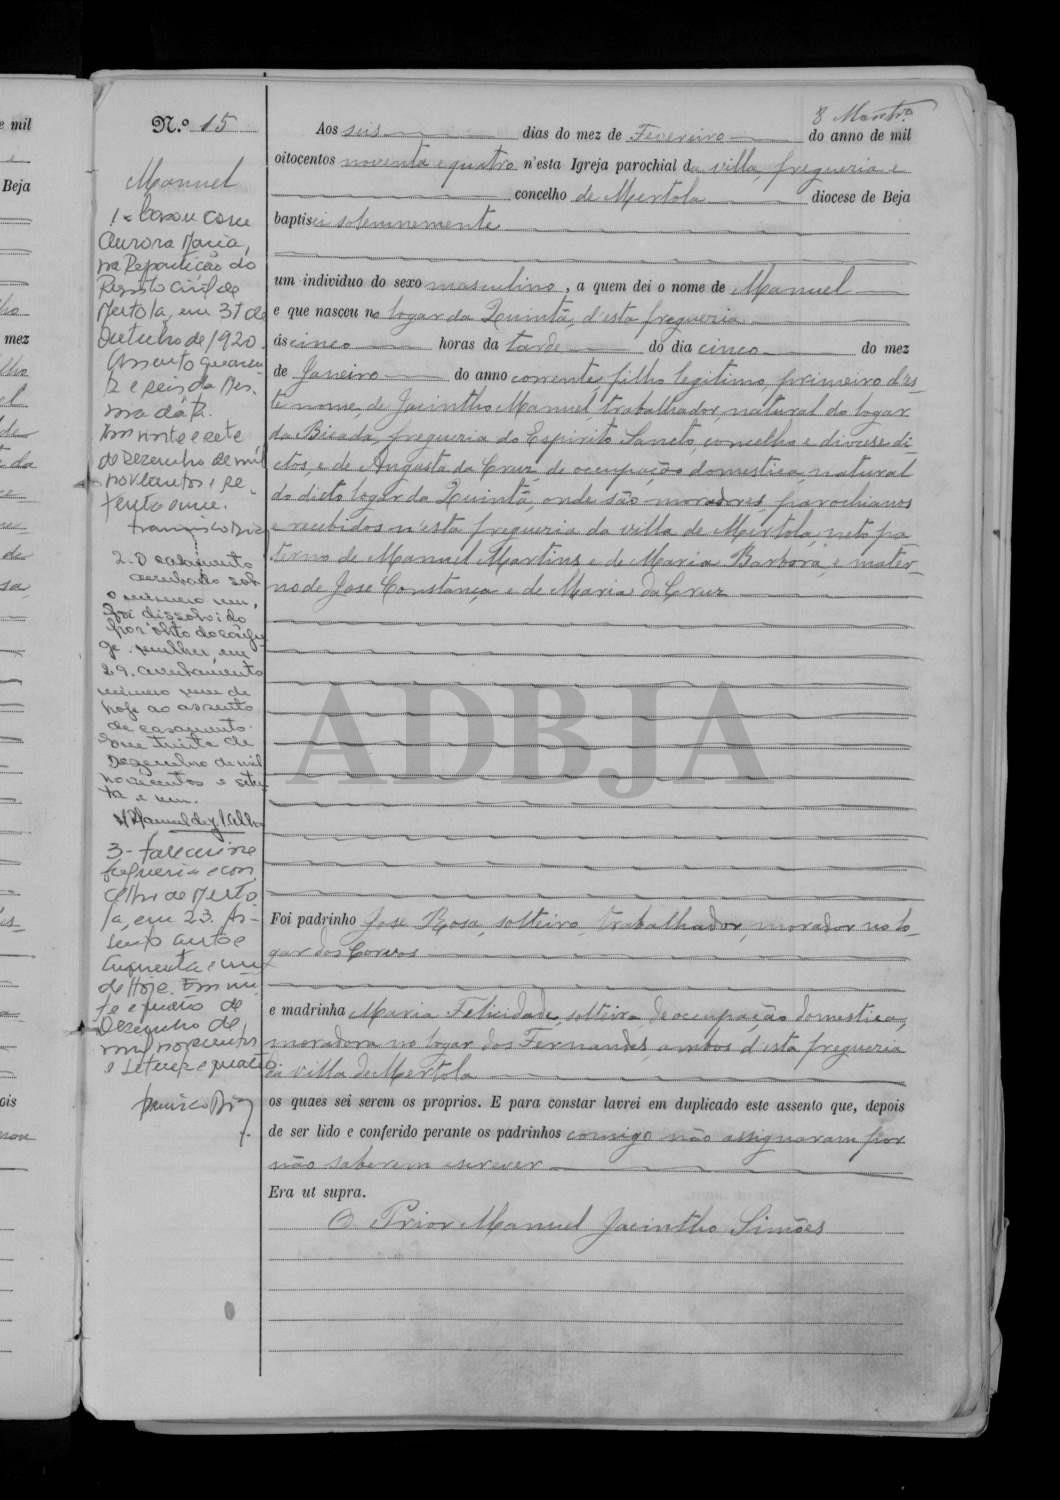 8 Montro
N.º 15
Manuel
1- Casou com
Aurora Maria,
na Repartição do
Registo Civil de
Mertola, em 31 de
Outubro de 1920.
Assento quaren-
ta e seis da mes-
ma data.
Em vinte e sete
de Dezembro de mil
novecentos e se-
tenta e um.
2. O casamento
averbado sob
o número um,
foi dissolvido
por óbito do cônju-
ge mulher, em
29. averbamento
número um de
hoje ao assento
de casamento.
Em trinta de
Dezembro de mil
novecentos e seten-
ta e um.
3- Faleceu na
freguesia e con-
celho de Merto-
la, em 23. As-
sento cento e
cinquenta e um
de Hoje. Em vin-
te e quatro de
Dezembro de
mil novecentos
e setenta e quatro
Aos seis dias do mez de Fevereiro do anno de mil
oitocentos noventa e quatro n'esta Igreja parochial da villa, freguezia e
concelho de Mertola diocese de Beja
baptisei solemnemente
um individuo do sexo masculino, a quem dei o nome de Manuel
e que nasceu no logar da Quintã, d'esta freguezia
ás cinco horas da tarde do dia cinco do mez
de Janeiro do anno corrente, filho legitimo, primeiro d'es-
te nome, de Jacintho Manuel, trabalhador, natural do logar
da Bicada, freguezia do Espirito Sancto, concelho e diocese di-
ctos, e de Angusta da Cruz, de occupação domestica, natural
do dicto logar da Quintã, onde são moradores, parochianos
e recebidos n'esta freguezia da villa de Mertola, neto pa-
terno de Manuel Martins e de Maria Barbora, e mater-
no de Jose Constança e de Maria da Cruz
ADBJA
Foi padrinho Jose Rosa, solteiro, trabalhador, morador no lo-
gar dos Corvos
e madrinha Maria Felicidade, solteira, de occupação domestica,
moradora no logar dos Fernandes, ambos d'esta freguezia
da villa de Mertola
os quaes sei serem os proprios. E para constar lavrei em duplicado este assento que, depois
de ser lido e conferido perante os padrinhos comigo não assignaram por
não saberem escrever
Era ut supra.
O Prior Manuel Jacintho Simões